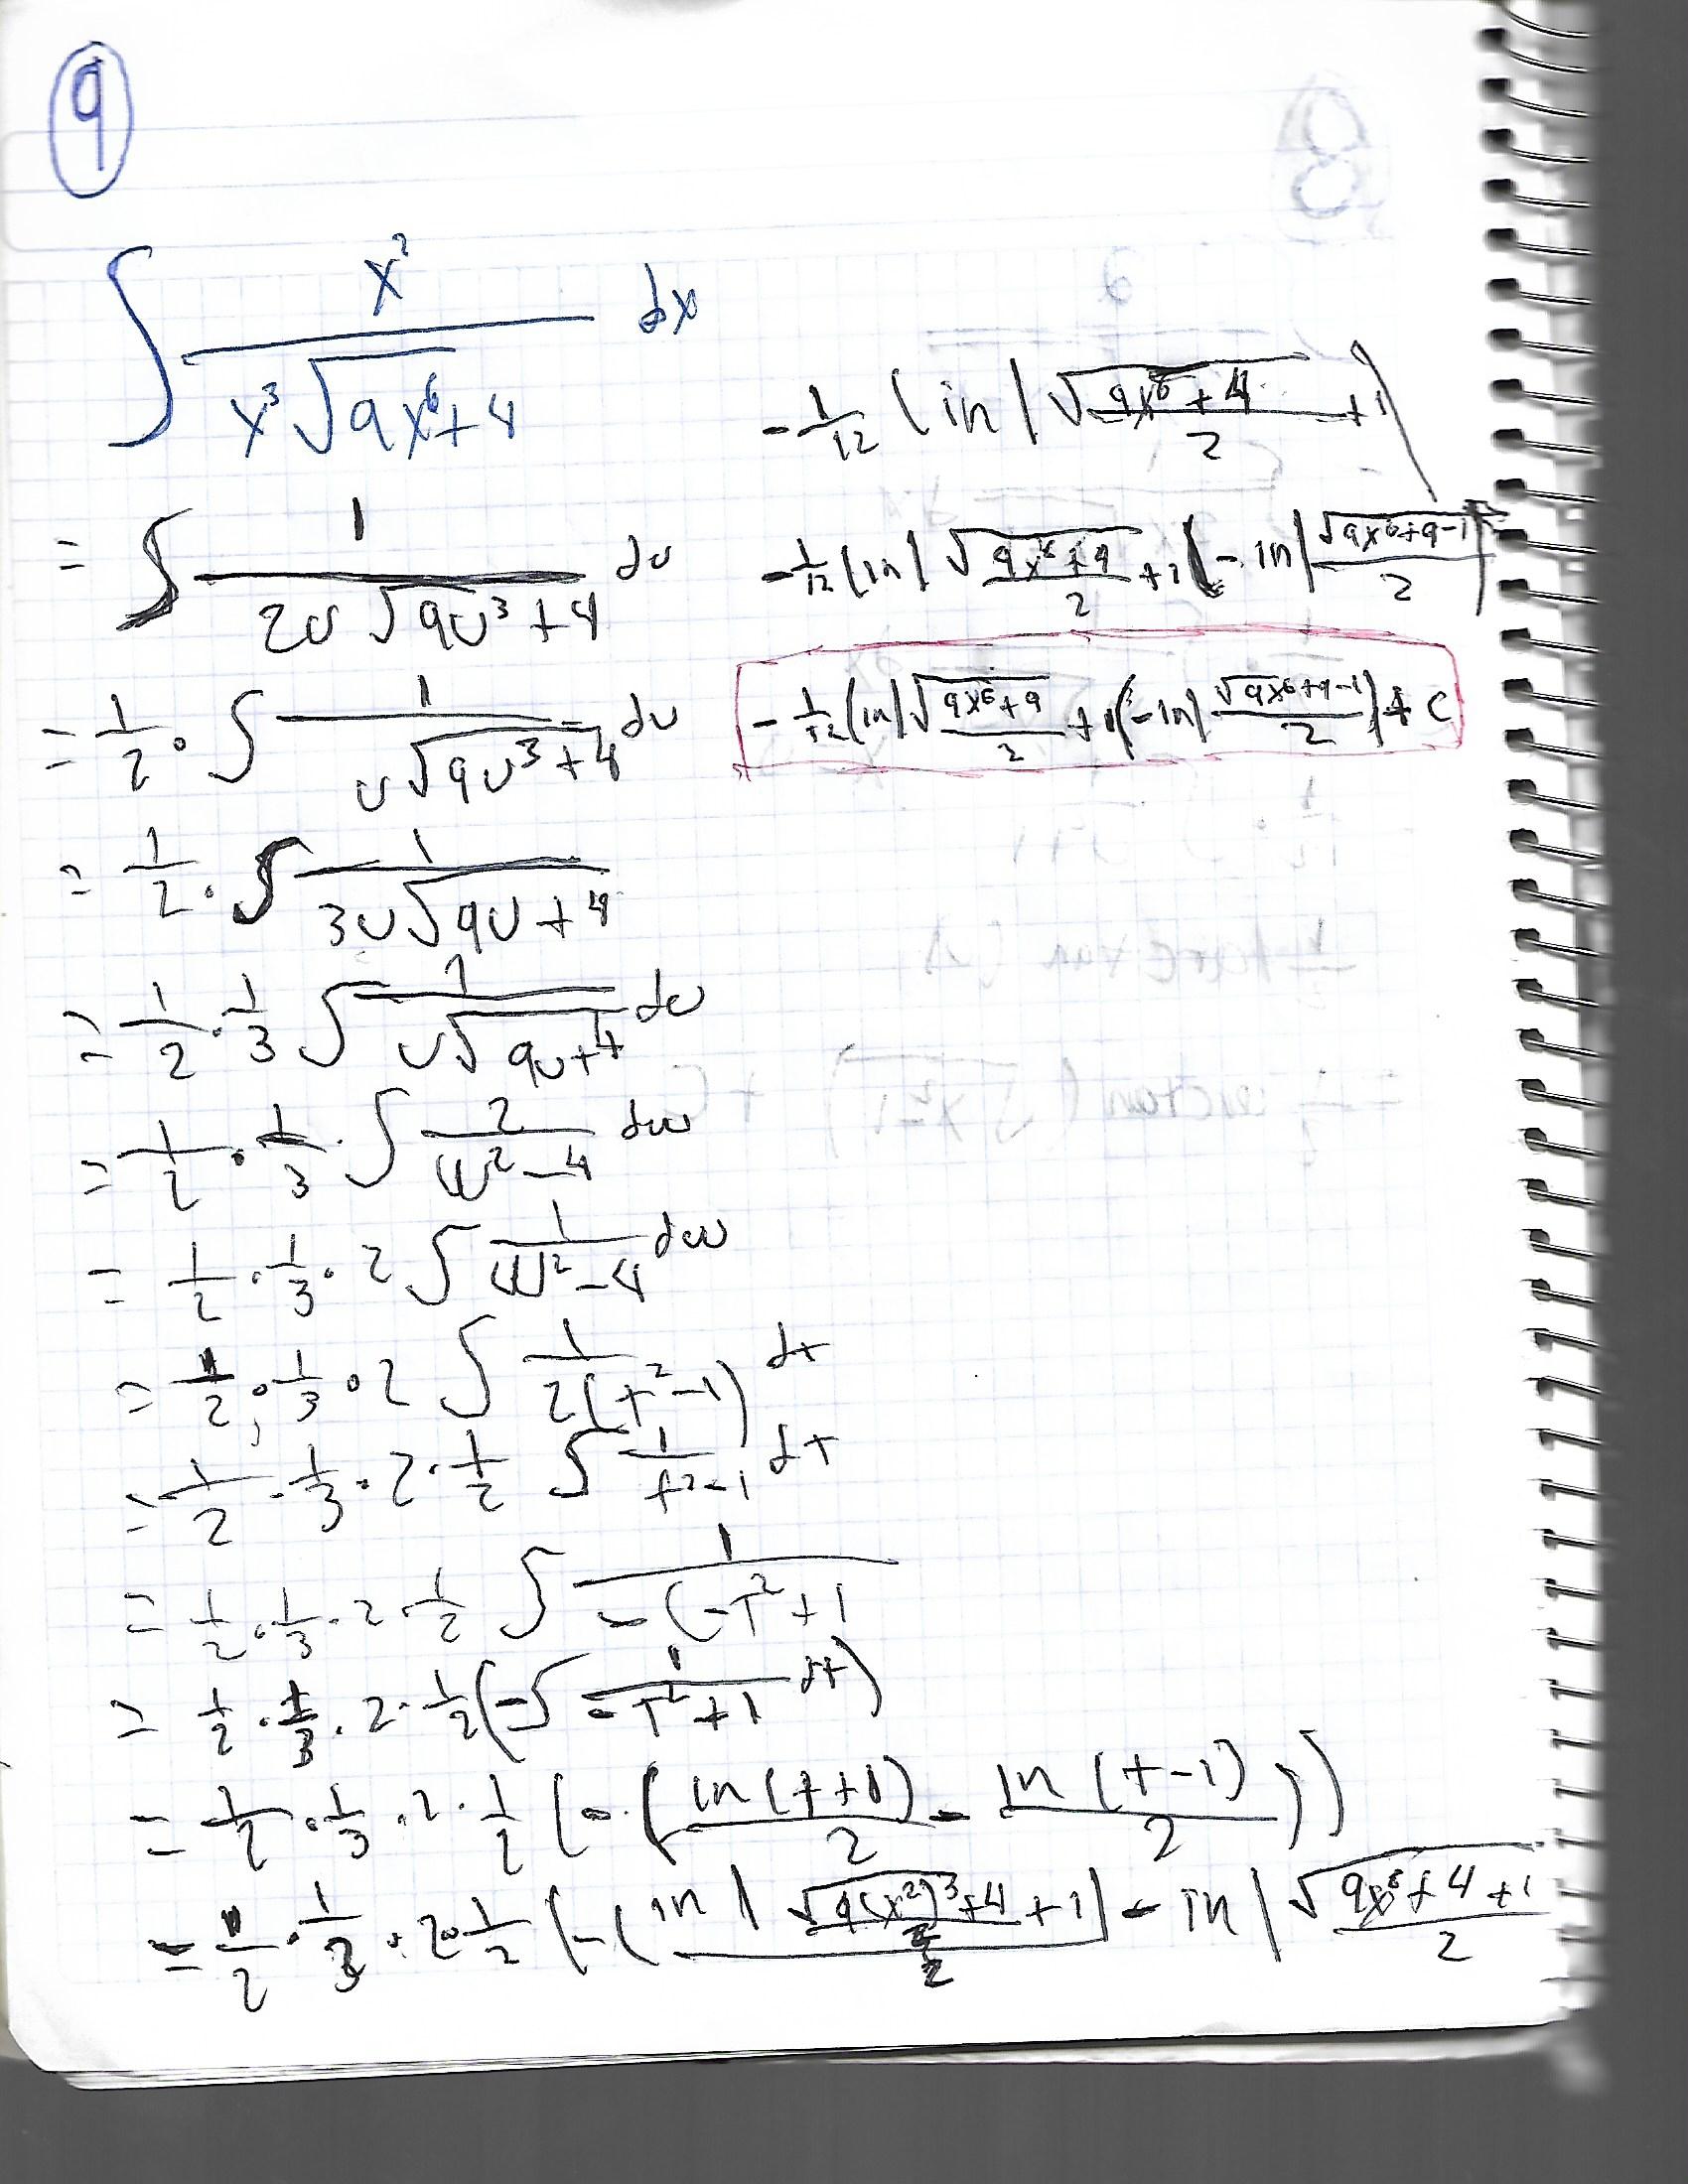 9
∫ x² / (x³ √(9x⁶+4)) dx
= ∫ 1 / (2u √(9u³+4)) du
= 1/2 · ∫ 1 / (u √(9u³+4)) du
= 1/2 · ∫ 1 / (3u √(9u+4))
= 1/2 · 1/3 ∫ 1 / (u √(9u+4)) du
= 1/2 · 1/3 · ∫ 2 / (w²-4) dw
= 1/2 · 1/3 · 2 ∫ 1 / (w²-4) dw
= 1/2 · 1/3 · 2 ∫ 1 / (2(t²-1)) dt
= 1/2 · 1/3 · 2 · 1/2 ∫ 1 / (t²-1) dt
= 1/2 · 1/3 · 2 · 1/2 ∫ 1 / (-(-T²+1
= 1/2 · 1/3 · 2 · 1/2 (-∫ 1 / (-T²+1) dt)
= 1/2 · 1/3 · 2 · 1/2 (-(ln(t+1) / 2 - ln(t-1) / 2))
= 1/2 · 1/3 · 2 · 1/2 (-(in | √(9(x²)³+4) / 2 + 1| / 2 - in | √(9x⁶+4+1) / 2
- 1/12 (in | √(9x⁶+4) / 2 + 1|
- 1/12 (in | √(9x⁶+9) / 2 + 1| - in | √(9x⁶+9-1) / 2 |
- 1/12 (in | √(9x⁶+9) / 2 + 1| - in | √(9x⁶+9-1) / 2 |) + C